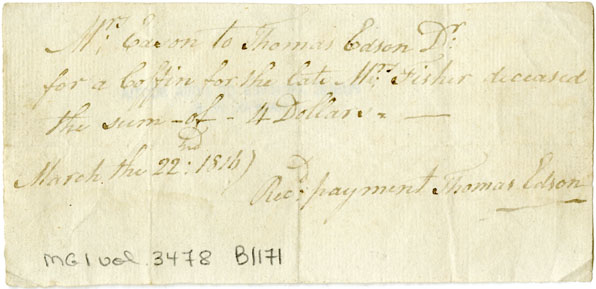 Mrs. Edson to Thomas Edson Dr.
for a Coffin for the late Mrs. Fisher deceased
the sum - of - 4 Dollars. -
March the 22nd: 1816)
Recd. payment Thomas Edson
MG1 vol. 3478 B1171